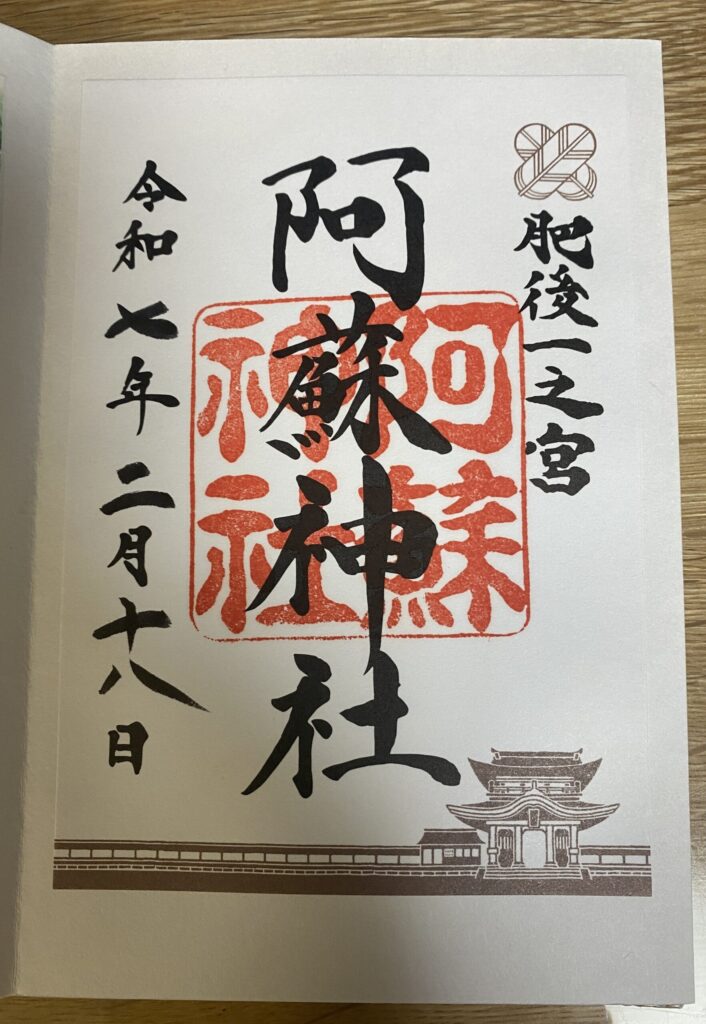 肥後一之宮
阿蘇神社
阿蘇神社
令和七年二月十八日